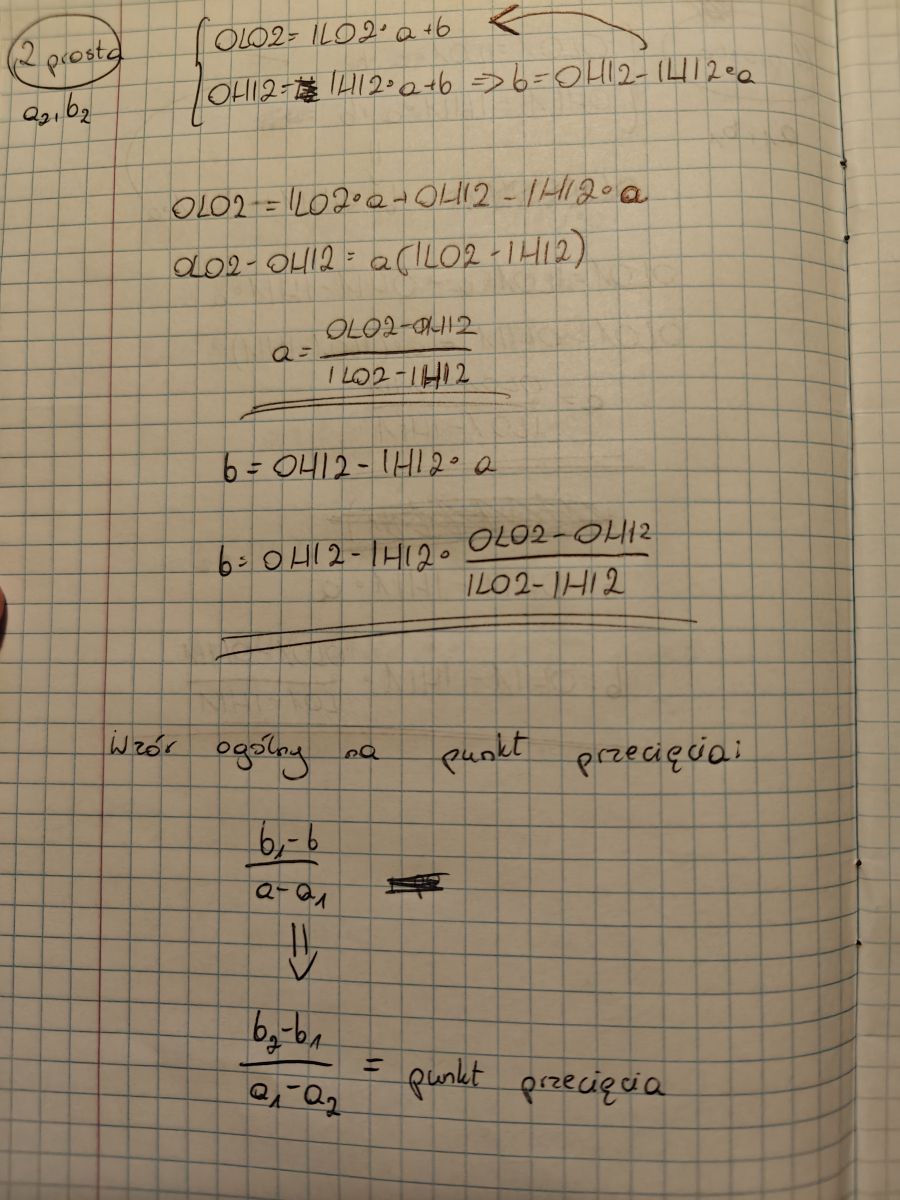 2 prosta
a₂, b₂
OLO2 = 1LO2 · a + b
OHI2 = 1HI2 · a + b ⇒ b = OHI2 - 1HI2 · a
OLO2 = 1LO2 · a + OHI2 - 1HI2 · a
OLO2 - OHI2 = a(1LO2 - 1HI2)
a = \frac{OLO2 - OHI2}{1LO2 - 1HI2}
b = OHI2 - 1HI2 · a
b = OHI2 - 1HI2 · \frac{OLO2 - OHI2}{1LO2 - 1HI2}
Wzór ogólny na punkt przecięcia:
\frac{b₁ - b}{a - a₁}
⇓
\frac{b₂ - b₁}{a₁ - a₂} = punkt przecięcia